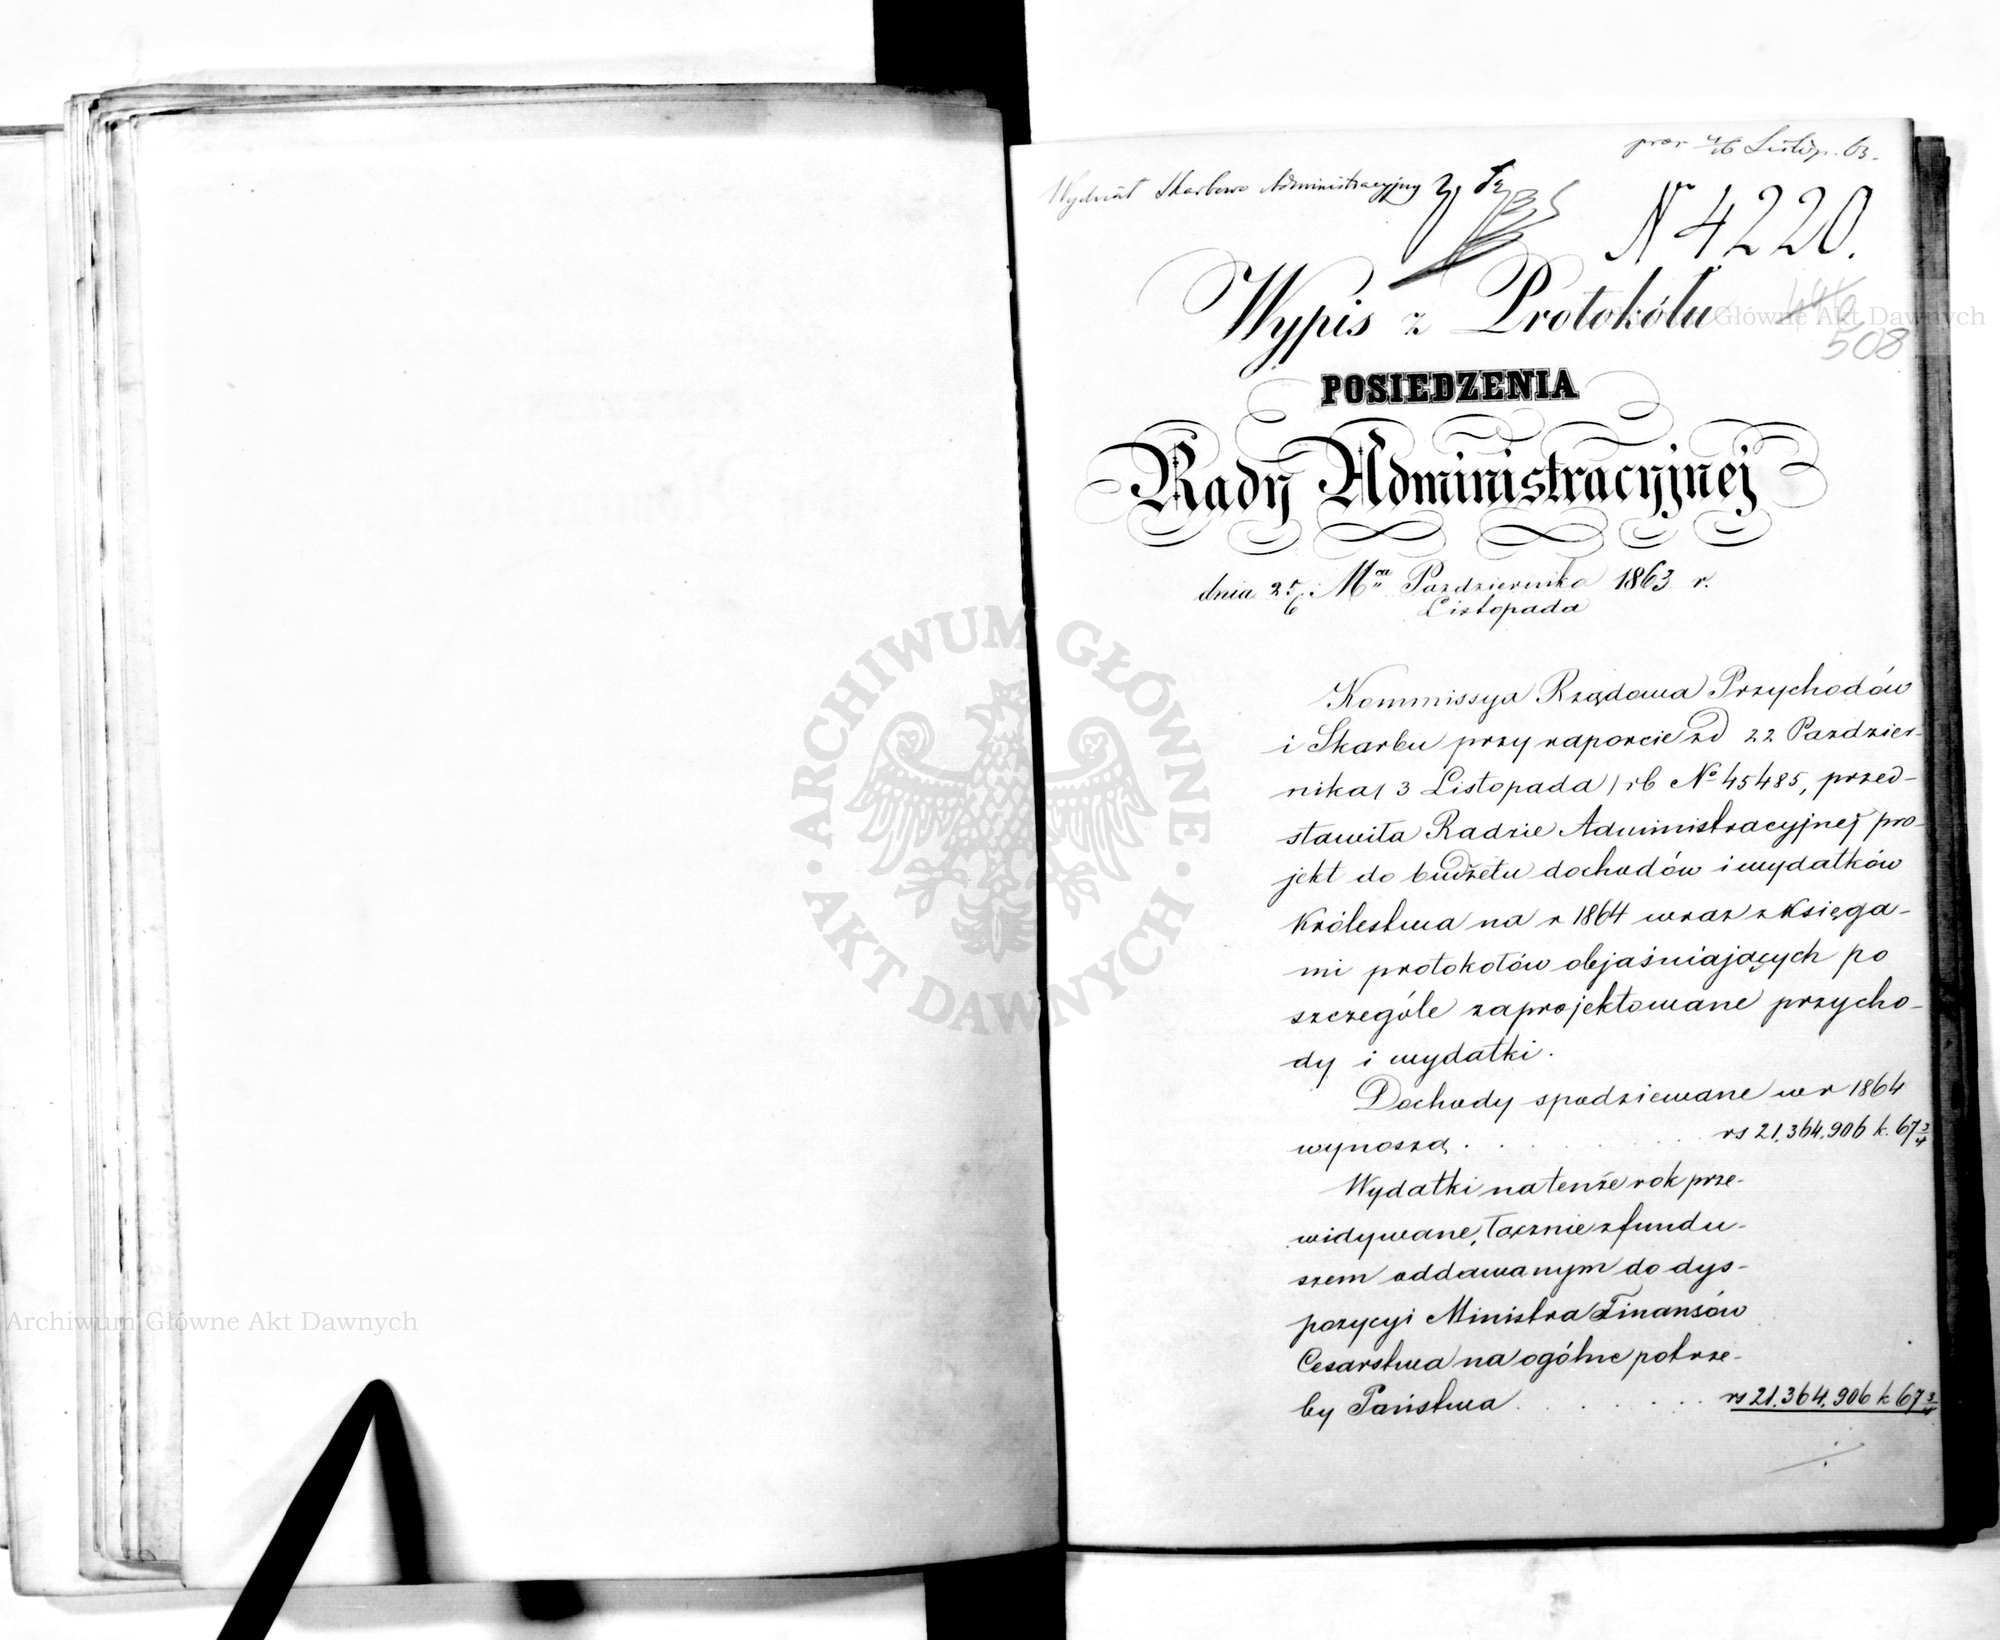 Listop. 63.
Wydział Skarbowo Administracyjny
N 4220.
Wypis z Protokółu
446
508
POSIEDZENIA
Rady Administracyjnej
dnia 25/6 Mca Pazdziernika 1863 r.
Listopada
Kommissya Rządowa Przychodów
i Skarbu przy raporcie zd 22 Pazdzier-
nika/ 3 Listopada/ rb No 45485, przed-
stawiła Radzie Administracyjnej pro-
jekt do budżetu dochodów i wydatków
Królestwa na r 1864 wraz z księga-
mi protokołów objaśniających po
szczególe zaprojektowane przycho-
dy i wydatki.
Dochody spodziewane w r 1864
wynoszą . . . . . . rs 21.364.906 k. 67 3/4
Wydatki na tenże rok prze-
widywane, łącznie z fundu-
szem oddawanym do dys-
pozycyi Ministra Finansów
Cesarstwa na ogólne potrze-
by Państwa . . . . . . rs 21.364.906 k 67 3/4
ARCHIWUM GŁÓWNE AKT DAWNYCH
Archiwum Główne Akt Dawnych
Główne Akt Dawnych